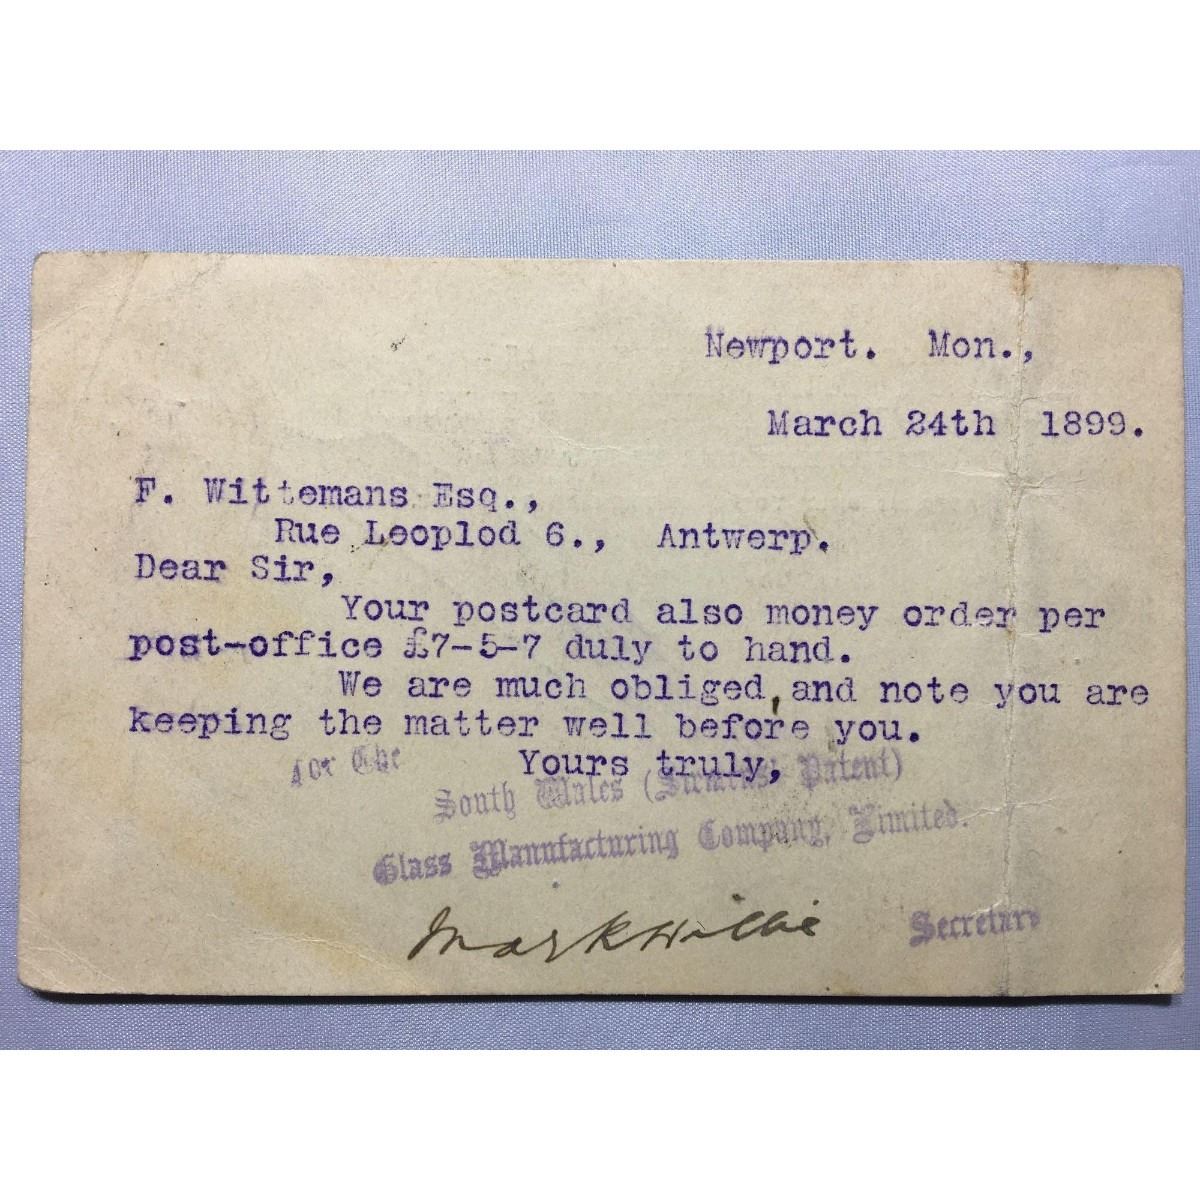 Newport. Mon.,
March 24th 1899.
F. Wittemans Esq.,
Rue Leoplod 6., Antwerp.
Dear Sir,
Your postcard also money order per
post-office £7-5-7 duly to hand.
We are much obliged, and note you are
keeping the matter well before you.
Yours truly,
for The
South Wales (Siemens' Patent)
Glass Manufacturing Company, Limited.
Mark Willie Secretary